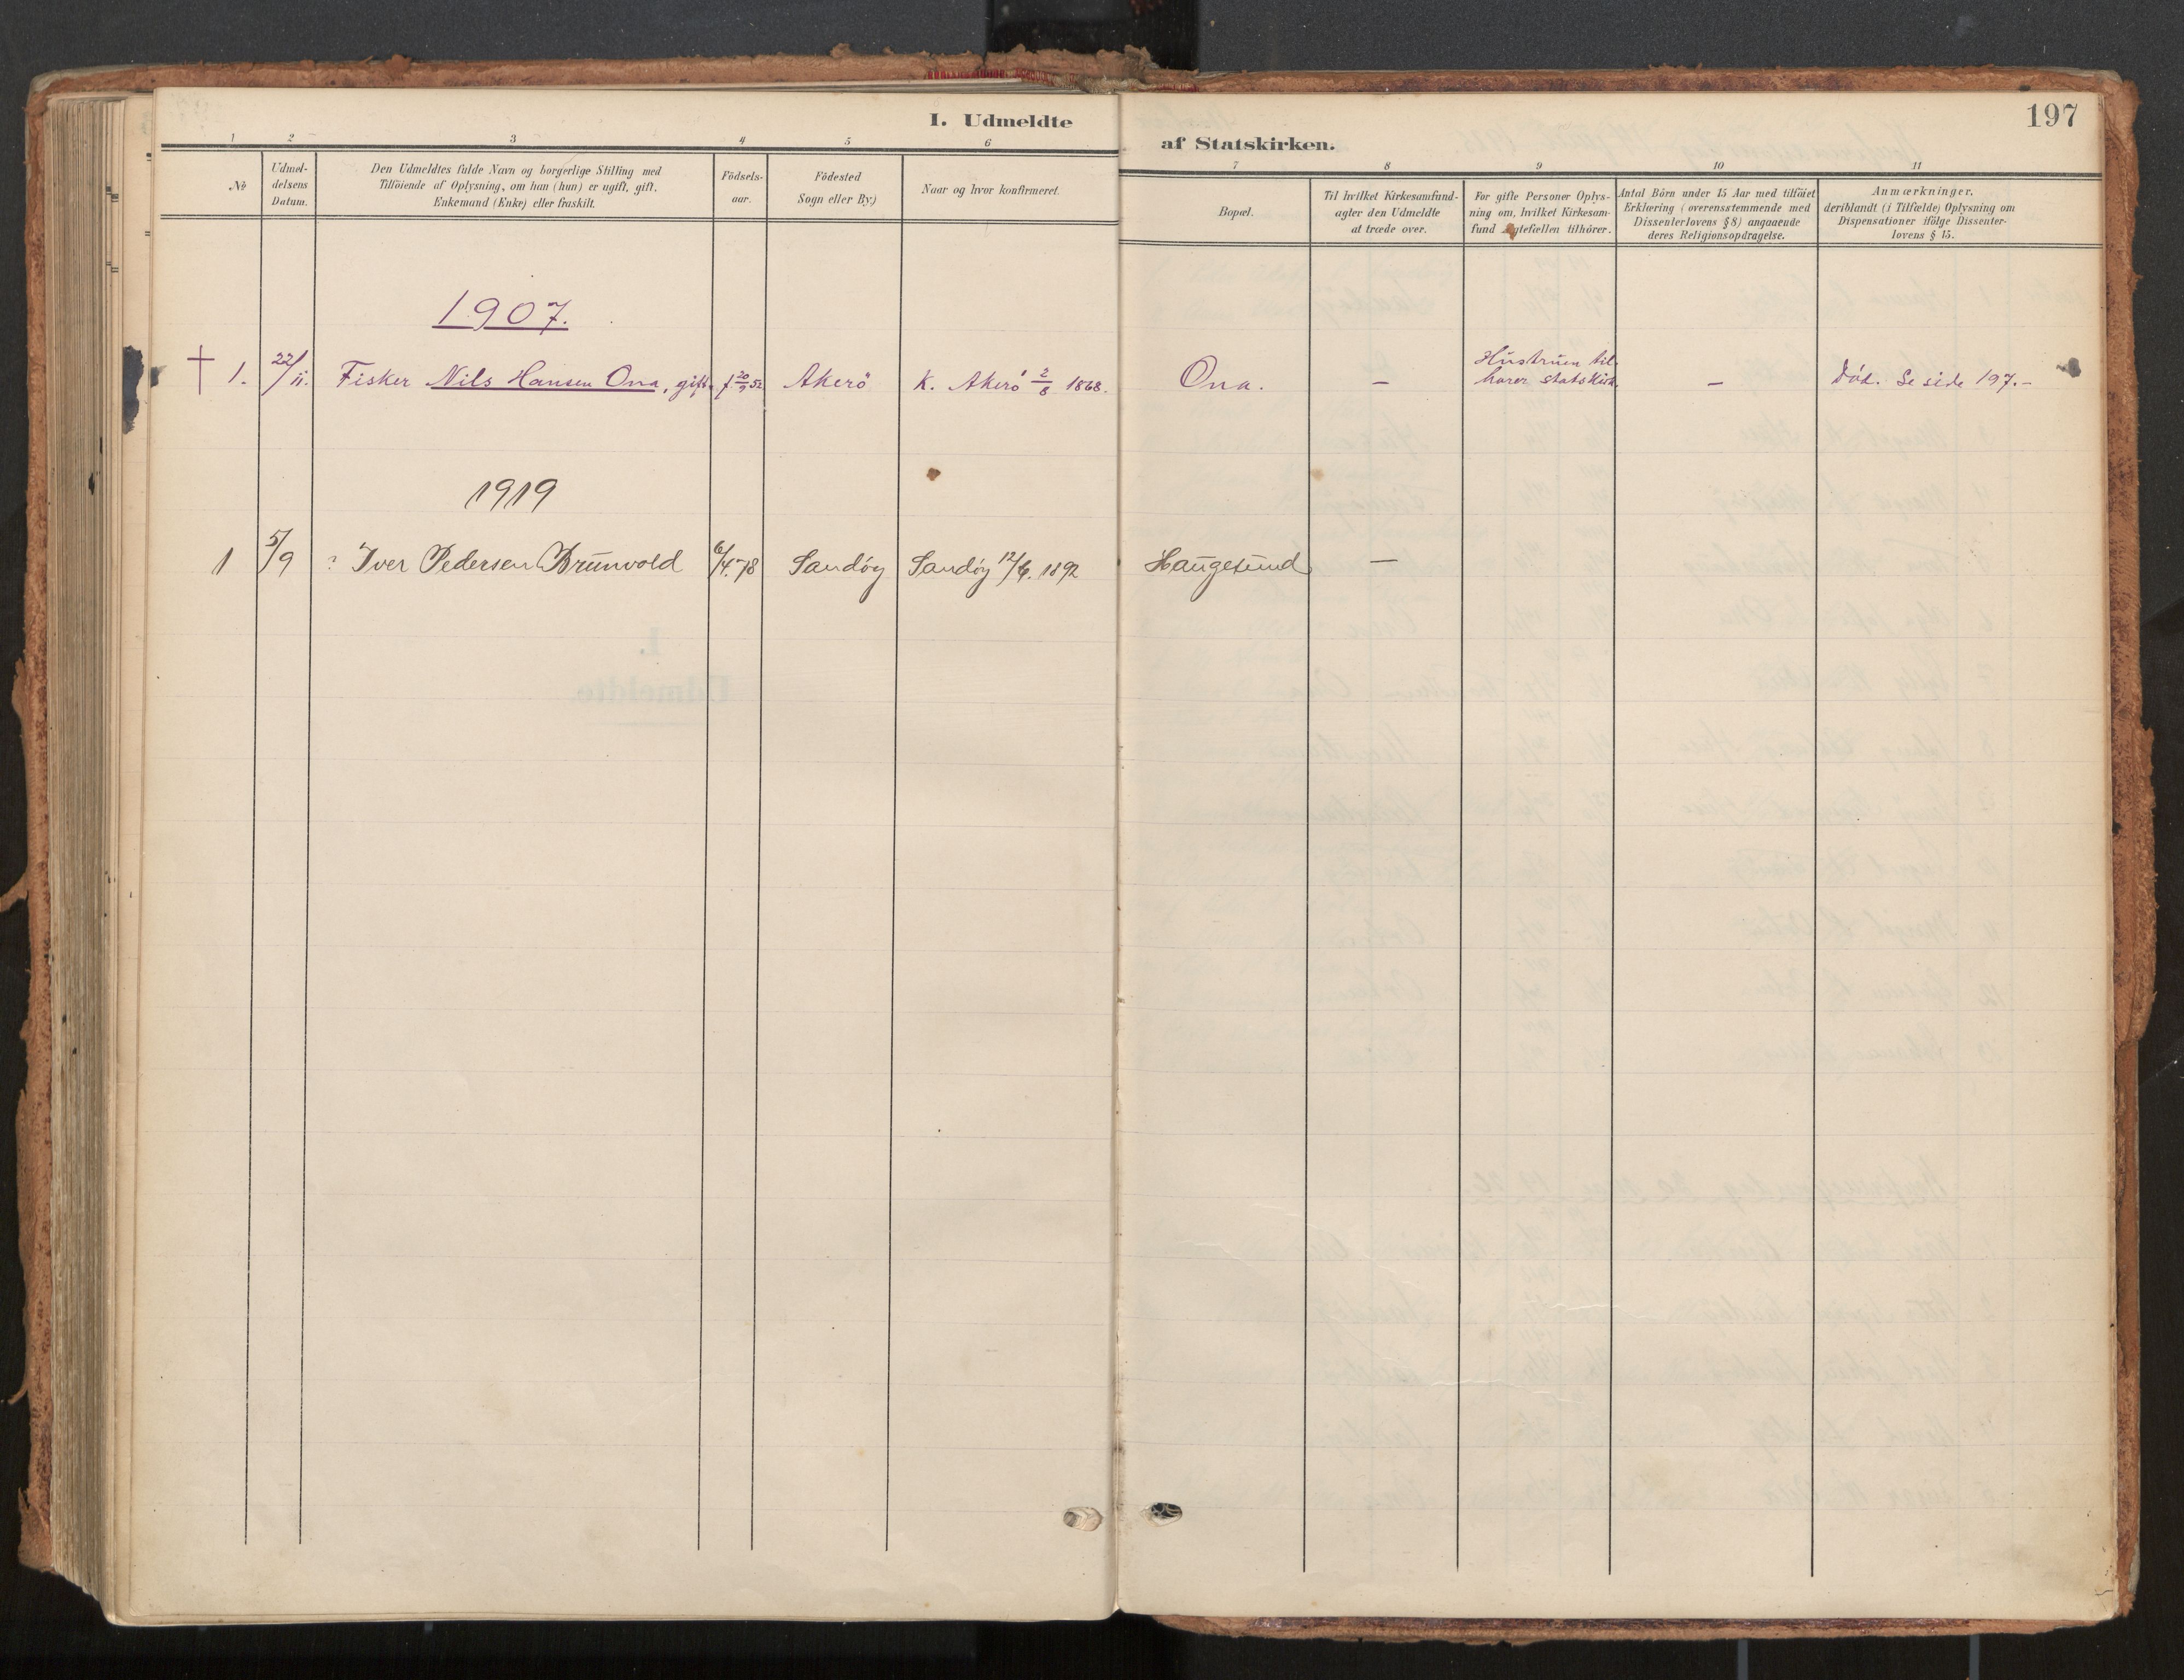 197
I. Udmeldte af Statskirken.
1 2 3 4 5 6 7 8 9 10 11
№
Udmel-
delsens
Datum.
Den Udmeldtes fulde Navn og borgerlige Stilling med
Tilföiende af Oplysning, om han (hun) er ugift, gift,
Enkemand (Enke) eller fraskilt.
Födsels-
aar.
Födested
Sogn eller By.)
Naar og hvor konfirmeret.
Bopæl.
Til hvilket Kirkesamfund-
agter den Udmeldte
at træde over.
For gifte Personer Oplys-
ning om, hvilket Kirkesam-
fund Ægtefællen tilhörer.
Antal Börn under 15 Aar med tilföiet
Erklæring (overensstemmende med
Dissenterlovens § 8) angaaende
deres Religionsopdragelse.
Anmærkninger,
deriblandt (i Tilfælde) Oplysning om
Dispensationer ifölge Dissenter-
lovens § 15.
1907.
† 1. 22/11. Fisker Nils Hansen Ona, gift. f. 20/9 52 Akerö K. Akerö 2/8 1868. Ona. — Hustruen til-
hører statskirk. — Død. Se side 197.-
1919
1 5/9 Iver Pedersen Brunvold 6/4.78 Sandøy Sandøy 12/6. 1892 Haugesund —